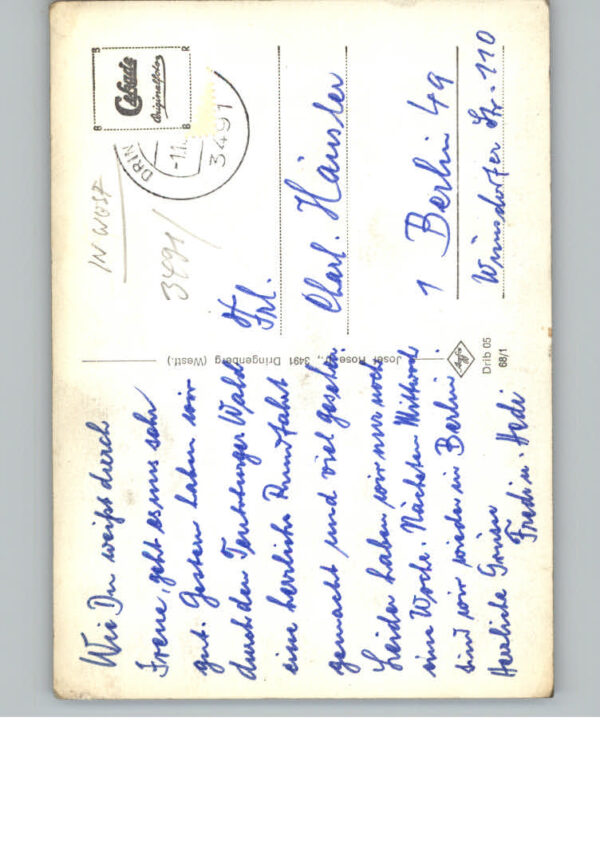 Wie Du weißt durch
Irene, geht es uns sehr
gut. Gestern haben wir
durch den Teutoburger Wald
eine herrliche Rundfahrt
gemacht und viel gesehen.
Leider haben wir nur noch
eine Woche. Nächsten Mittwoch
sind wir wieder in Berlin.
Herzliche Grüsse
Fredi u. Hedi
Josef Rose 3491 Dringenberg (Westf.)
Agfa
Drib 05
68/1
IN WEST
3491/
DRIN
-1.1
3491
B R
Cekade
Originalfoto
B B
Frl.
Charl. Häusler
1 Berlin 49
Str. 110